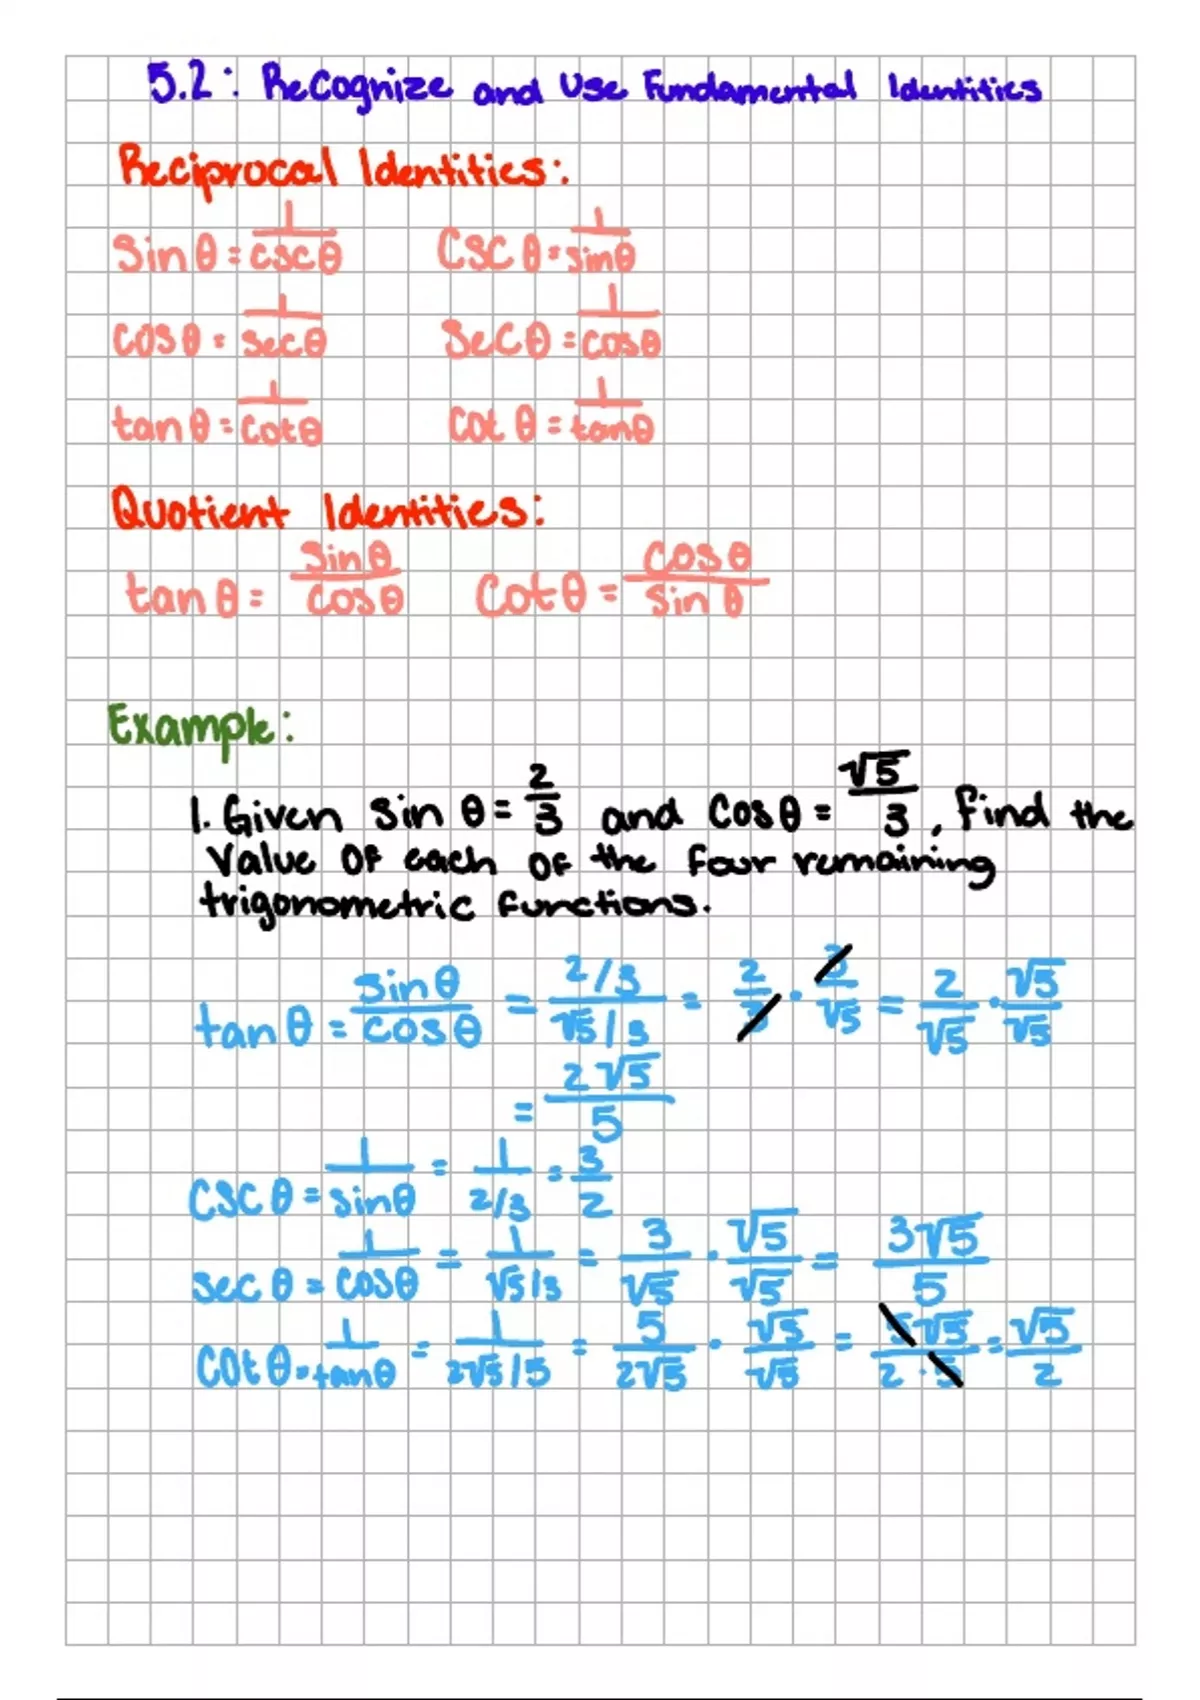 5.2: Recognize and Use Fundamental Identities
Reciprocal Identities:
sin θ = 1/csc θ    csc θ = 1/sin θ
cos θ = 1/sec θ    sec θ = 1/cos θ
tan θ = 1/cot θ    cot θ = 1/tan θ
Quotient Identities:
tan θ = sin θ/cos θ    cot θ = cos θ/sin θ
Example:
1. Given sin θ = 2/3 and cos θ = √5/3, find the
value of each of the four remaining
trigonometric functions.
tan θ = sin θ/cos θ = (2/3)/(√5/3) = 2/3 · 3/√5 = 2/√5 · √5/√5
= 2√5/5
csc θ = 1/sin θ = 1/(2/3) = 3/2
sec θ = 1/cos θ = 1/(√5/3) = 3/√5 · √5/√5 = 3√5/5
cot θ = 1/tan θ = 1/(2√5/5) = 5/2√5 · √5/√5 = 5√5/2·5 = √5/2